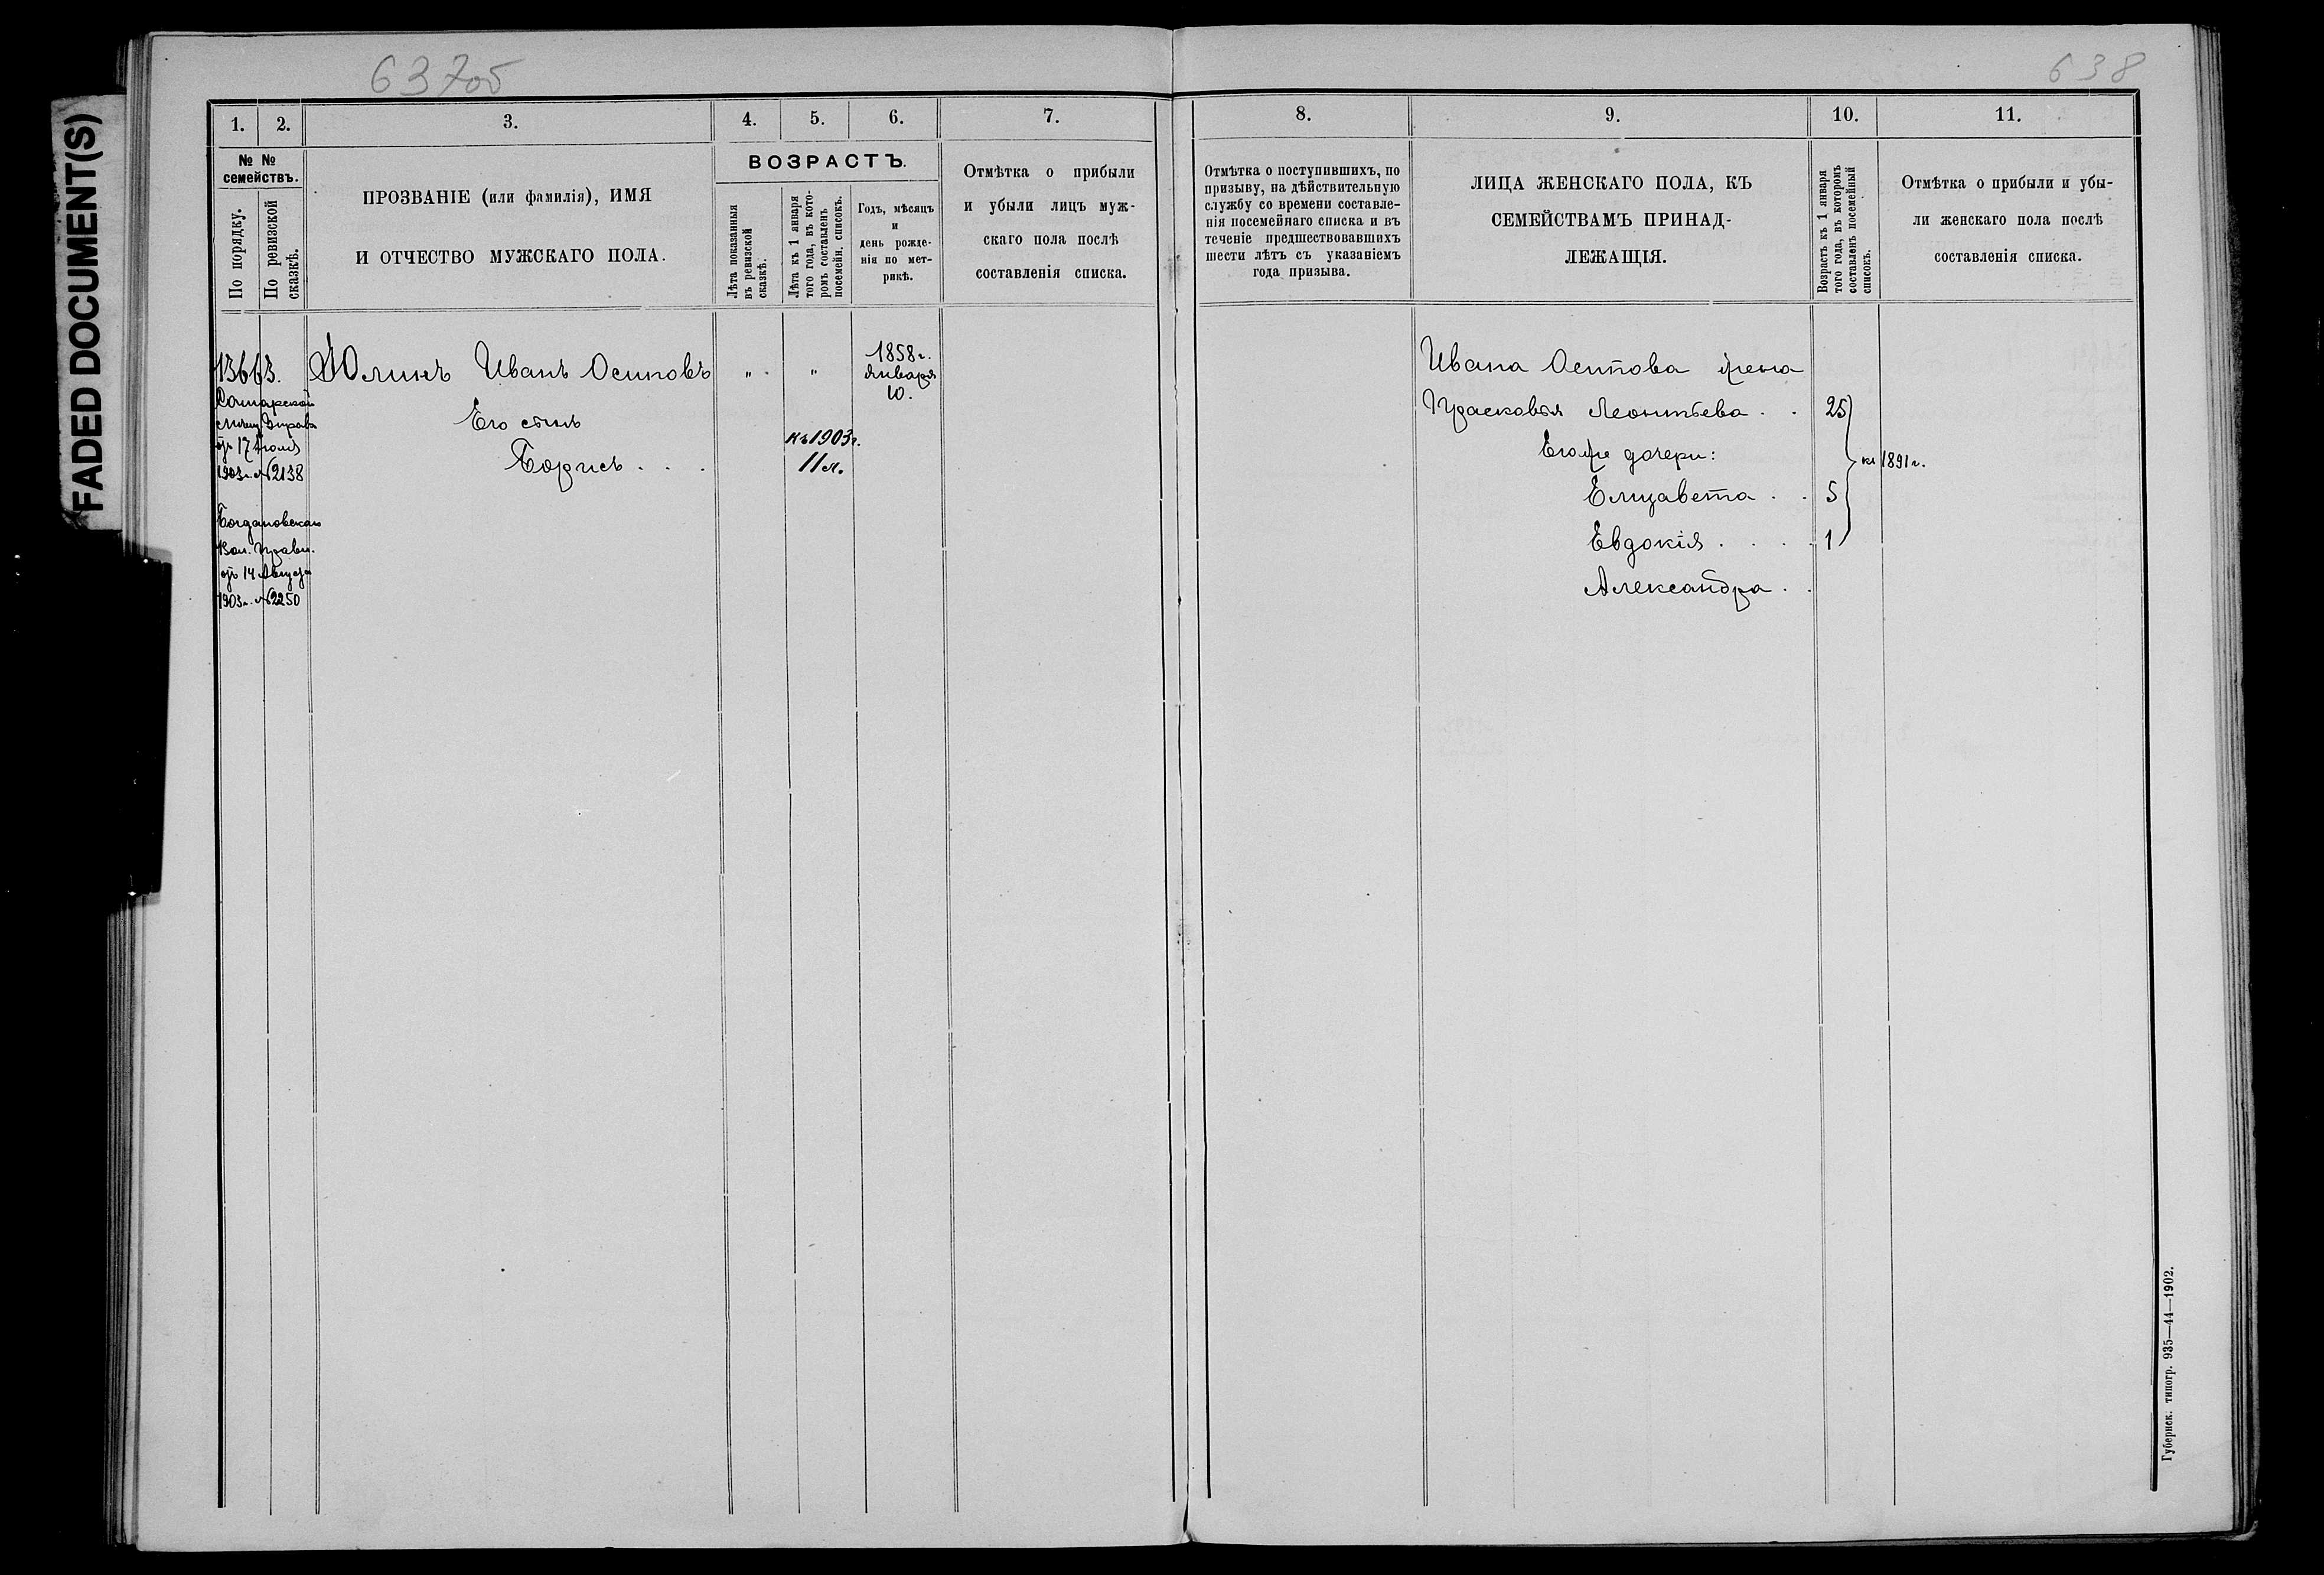 FADED DOCUMENT(S)
637об
638
1. 2. 3. 4. 5. 6. 7.
№ №
семействъ.
По порядку.
По ревизской
сказкѣ.
ПРОЗВАНІЕ (или фамилія), ИМЯ
И ОТЧЕСТВО МУЖСКАГО ПОЛА.
ВОЗРАСТЪ.
Лѣта показанныя
въ ревизской
сказкѣ.
Лѣта къ 1 января
того года, въ кото-
ромъ составленъ
посемейн. списокъ.
Годъ, мѣсяцъ
и
день рожде-
нія по мет-
рикѣ.
Отмѣтка о прибыли
и убыли лицъ муж-
скаго пола послѣ
составленія списка.
13663.
Самарской
мѣщ. Управы
отъ 17 Іюля
1903г. №2138
Богдановскаго
Вол. Правл.
отъ 14 Августа
1903г. №2250
Юлинъ Иванъ Осиповъ „ . „
1858г.
Января
10.
Его сынъ
Борисъ . . .
къ 1903г.
11л.
8. 9. 10. 11.
Отмѣтка о поступившихъ, по
призыву, на дѣйствительную
службу со времени составле-
нія посемейнаго списка и въ
теченіе предшествовавшихъ
шести лѣтъ съ указаніемъ
года призыва.
ЛИЦА ЖЕНСКАГО ПОЛА, КЪ
СЕМЕЙСТВАМЪ ПРИНАД-
ЛЕЖАЩІЯ.
Возрастъ къ 1 января
того года, въ которомъ
составленъ посемейный
списокъ.
Отмѣтка о прибыли и убы-
ли женскаго пола послѣ
составленія списка.
Ивана Осипова жена
Прасковья Леонтьева . . 25
Его же дочери:
къ 1891г.
Елизавета . . 5
Евдокія . . . . 1
Александра . .
Губернск. типогр. 935—44—1902.